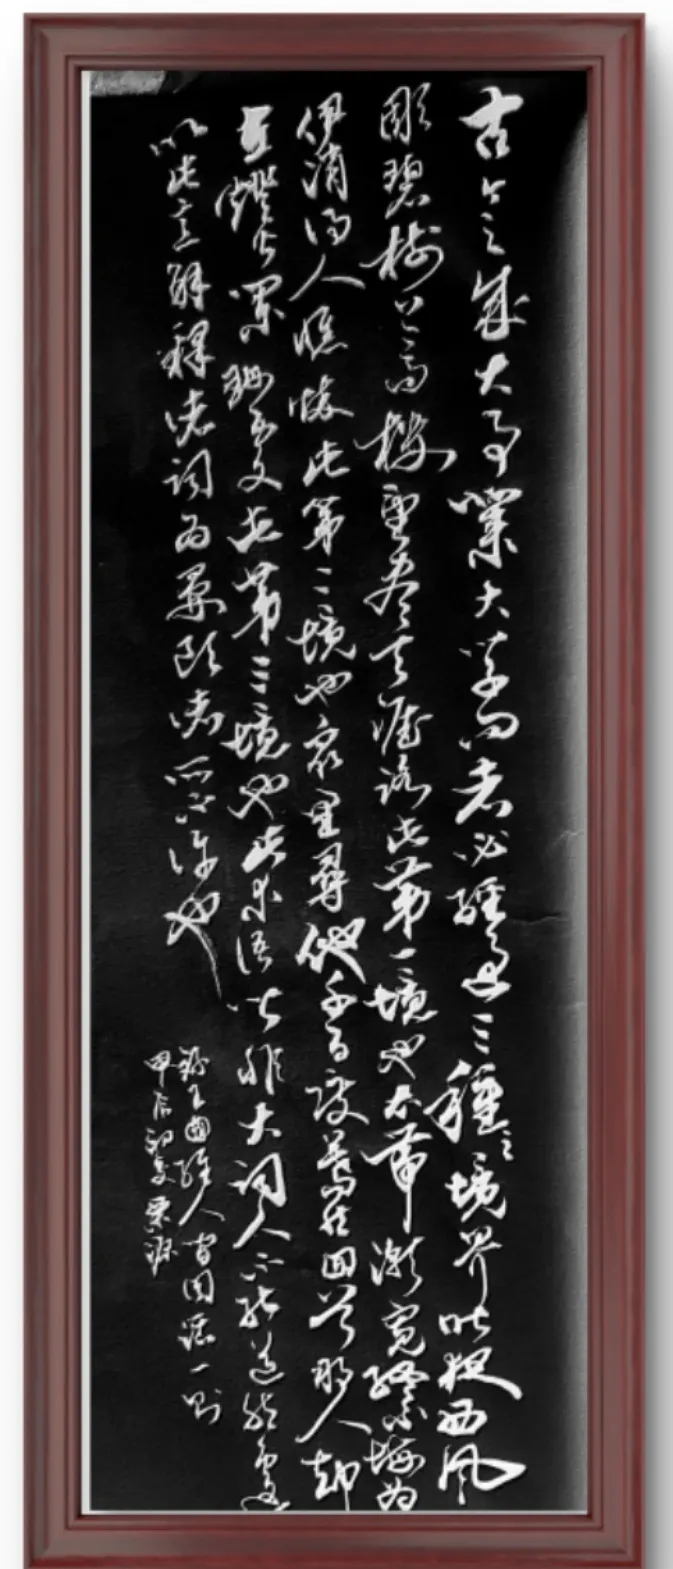 古今之成大事業大学问者必經過三種之境界昨夜西风
彫碧樹上高樓望尽天涯路此第一境也衣带漸寬終不悔为
伊消得人憔悴此第二境也衆里尋他千百度驀然回首那人却
在燈火闌珊處此第三境也此等语皆非大词人不能道然遽
以此意解釋诸词为晏欧诸所不许也
錄王國维人间词话一则
甲辰初夏